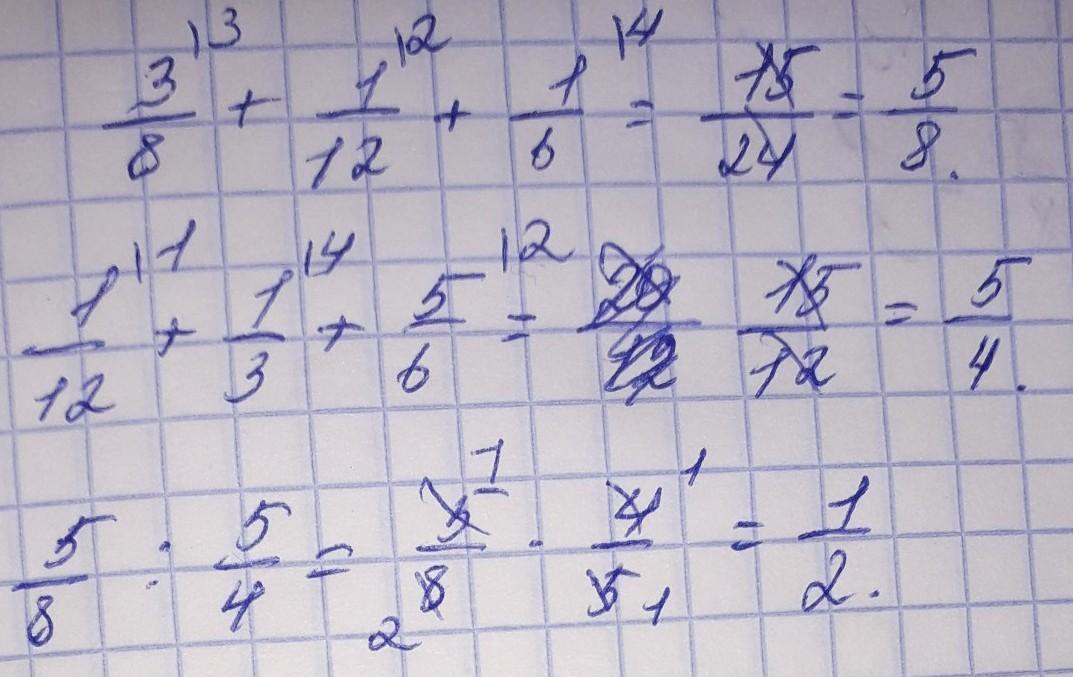 3/8 |3 + 1/12 |2 + 1/6 |4 = 15/24 = 5/8.
1/12 |1 + 1/3 |4 + 5/6 |2 = 20/12 15/12 = 5/4.
5/8 : 5/4 = 5 1/8 2 · 4 1/5 1 = 1/2.